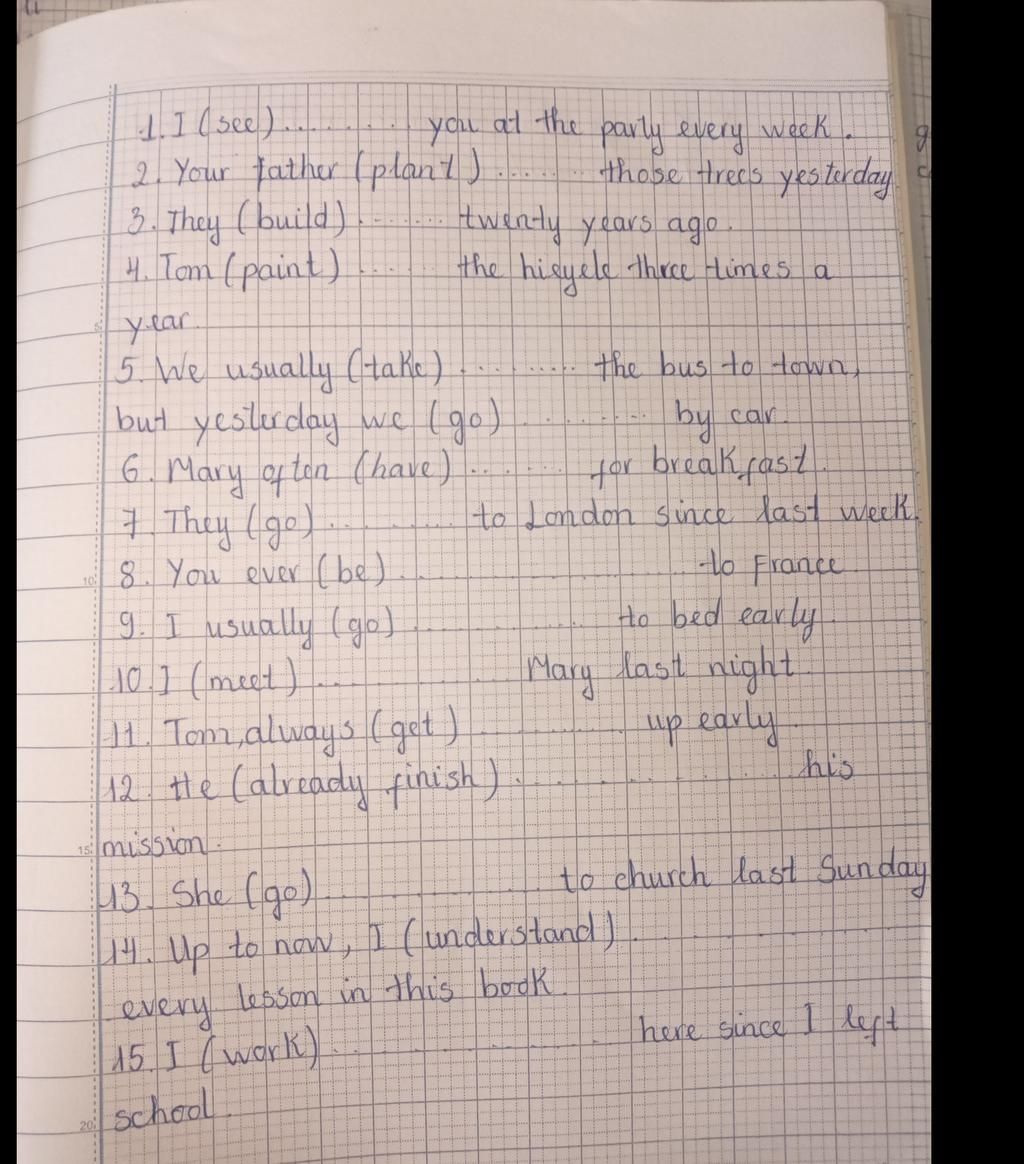 1. I (see).......... you at the party every week.
2. Your father (plant)....... those trees yesterday
3. They (build)........ twenty years ago.
4. Tom (paint)...... the bicycle three times a
year.
5. We usually (take)......... the bus to town,
but yesterday we (go)........ by car.
6. Mary often (have)....... for breakfast.
7. They (go).......... to London since last week.
8. You ever (be)................ to France
9. I usually (go)........... to bed early
10. I (meet)............. Mary last night
11. Tom, always (get)........... up early
12. He (already finish)................ his
mission.
13. She (go)............... to church last Sunday
14. Up to now, I (understand)............
every lesson in this book
15. I (work)................. here since I left
school.
5
10
15
20